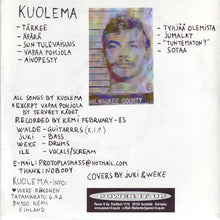 KUOLEMA
- TÄRKEE
- ÄPÄRÄ
- SUN TULEVAISUUS
- VAPAA POHJOLA
- AIVOPESTY
- TYHJÄÄ OLEMISTA
- JUMALAT
- "TUNTEMATON"?
- SOTAA
MILWAUKEE COUNTY
ALL SONGS BY KUOLEMA
EXCEPT VAPAA POHJOLA
BY TERVEET KÄDET
RECORDED BY KEMI FEBRUARY-83
WALDE - GUITARRRS (R.I.P.)
JUKI - BASS
WEKE - DRUMS
ILE - VOCALS/SCREAM
E-MAIL: PROTOPLASMASS@HOTMAIL.COM
THANX: NOBODY
COVERS BY JUKI & WEKE
KUOLEMA-INFO:
WEKE
TAPAININKATU 6 A 2
94100 KEMI
FINLAND
POWER IT UP